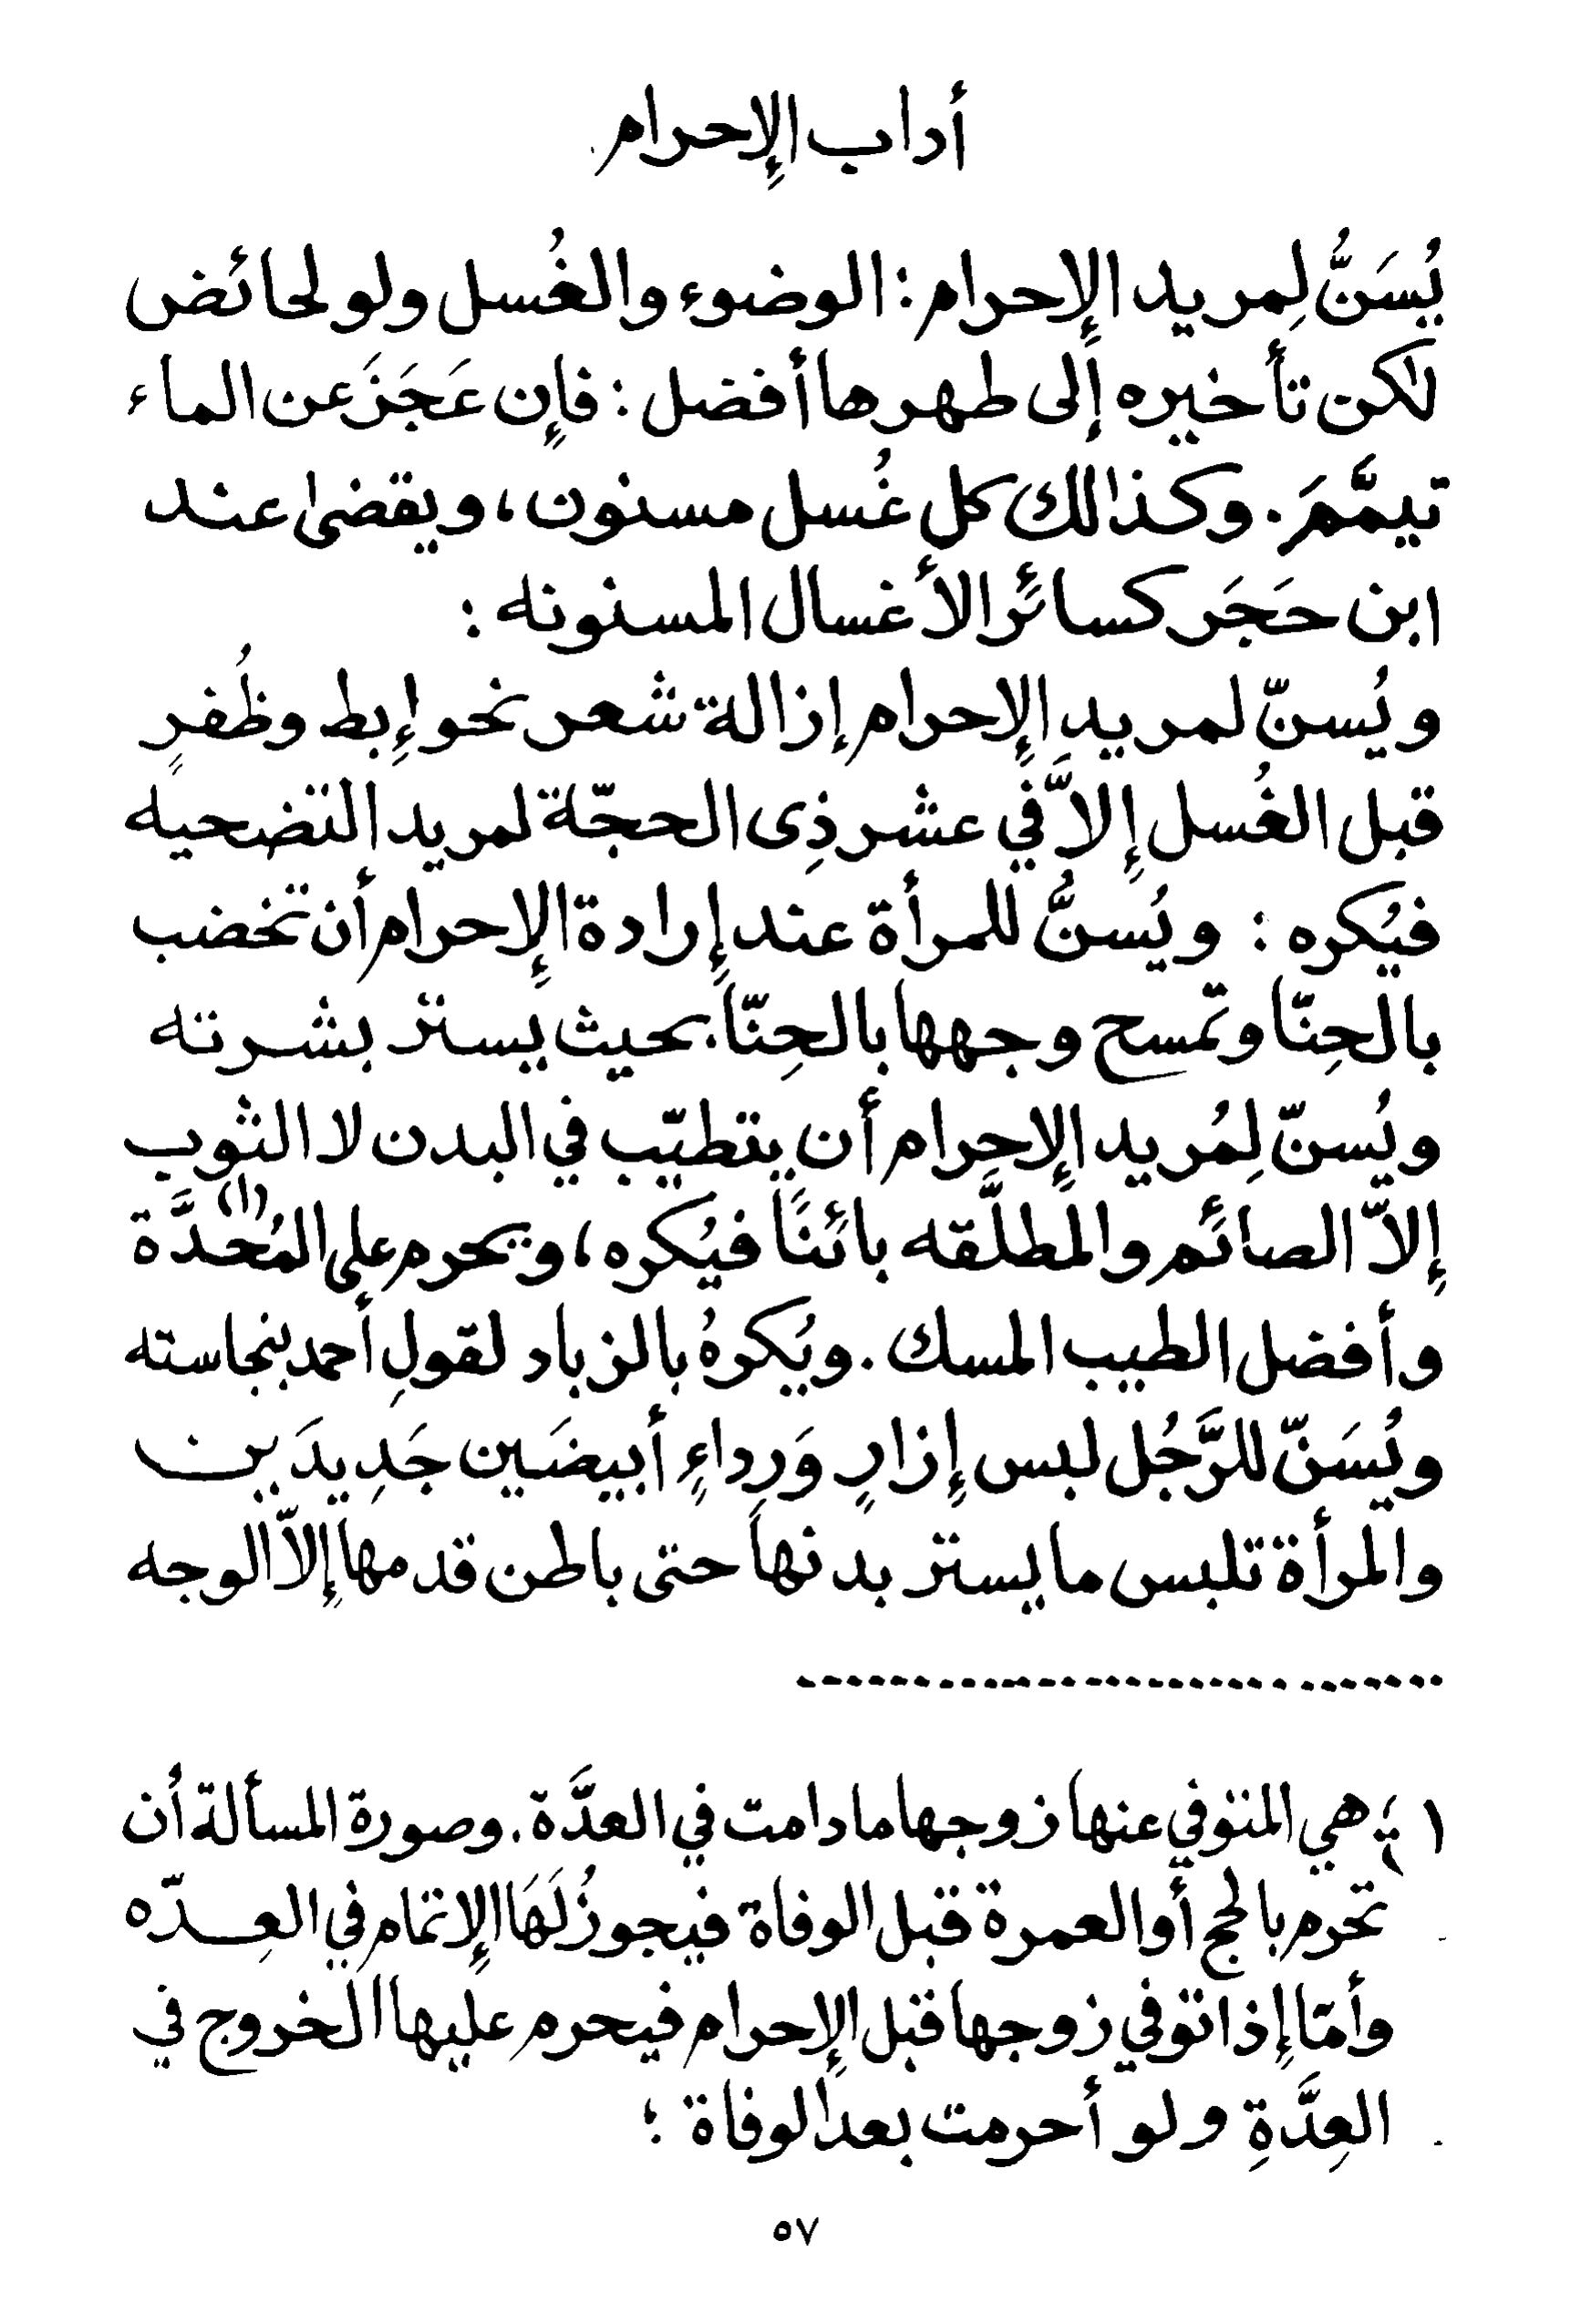 أداب الإحرام
يُسَنُّ لِمريد الإحرام: الوضوء والغُسل ولو لحائض
لٰكن تأخيره إلى طهرها أفضل: فإن عَجَزَ عن الماء
تيمَّمَ. وكذالك كل غُسل مسنون، ويقضىٰ عند
ابن حَجَر كسائر الأغسال المسنونه:
ويُسنّ لمريد الإحرام إزالة شعر نحو إبط وظُفرٍ
قبل الغُسل إلاَّ في عشر ذِى الحجّة لمريد التضحيه
فيُكره: ويُسنُّ للمرأة عند إرادة الإحرام أن تخضب
بالحِنّا وتمسح وجهها بالحِنّا. بحيث يستتر بشرته
ويُسنّ لِمُريد الإحرام أن يتطيّب في البدن لا الثوب
إلاّ الصائم والمطلَّقه بائنًا فيُكره، ويحرم على المُحدَّة (١)
وأفضل الطيب المسك. ويُكرهُ بالزباد لقولِ أحمد بنجاسته
ويُسَنّ للرَّجُل لبس إزارٍ وَرِداءٍ أبيضَين جَدِيدَين
والمرأة تلبس ما يستتر بدنها حتى باطن قدمها إلاّ الوجه
١ ؛ هي المتوفي عنها زوجها ما دامت في العدَّة. وصورة المسألة أن
تحرم بالحج أو العمرة قبل الوفاة فيجوزُ لَهَا الإتمام في العِدّه
وأمّا إذا توفي زوجها قبل الإحرام فيحرم عليها الخروج في
العِدَّةِ ولو أحرمت بعد الوفاة ؛
٥٧